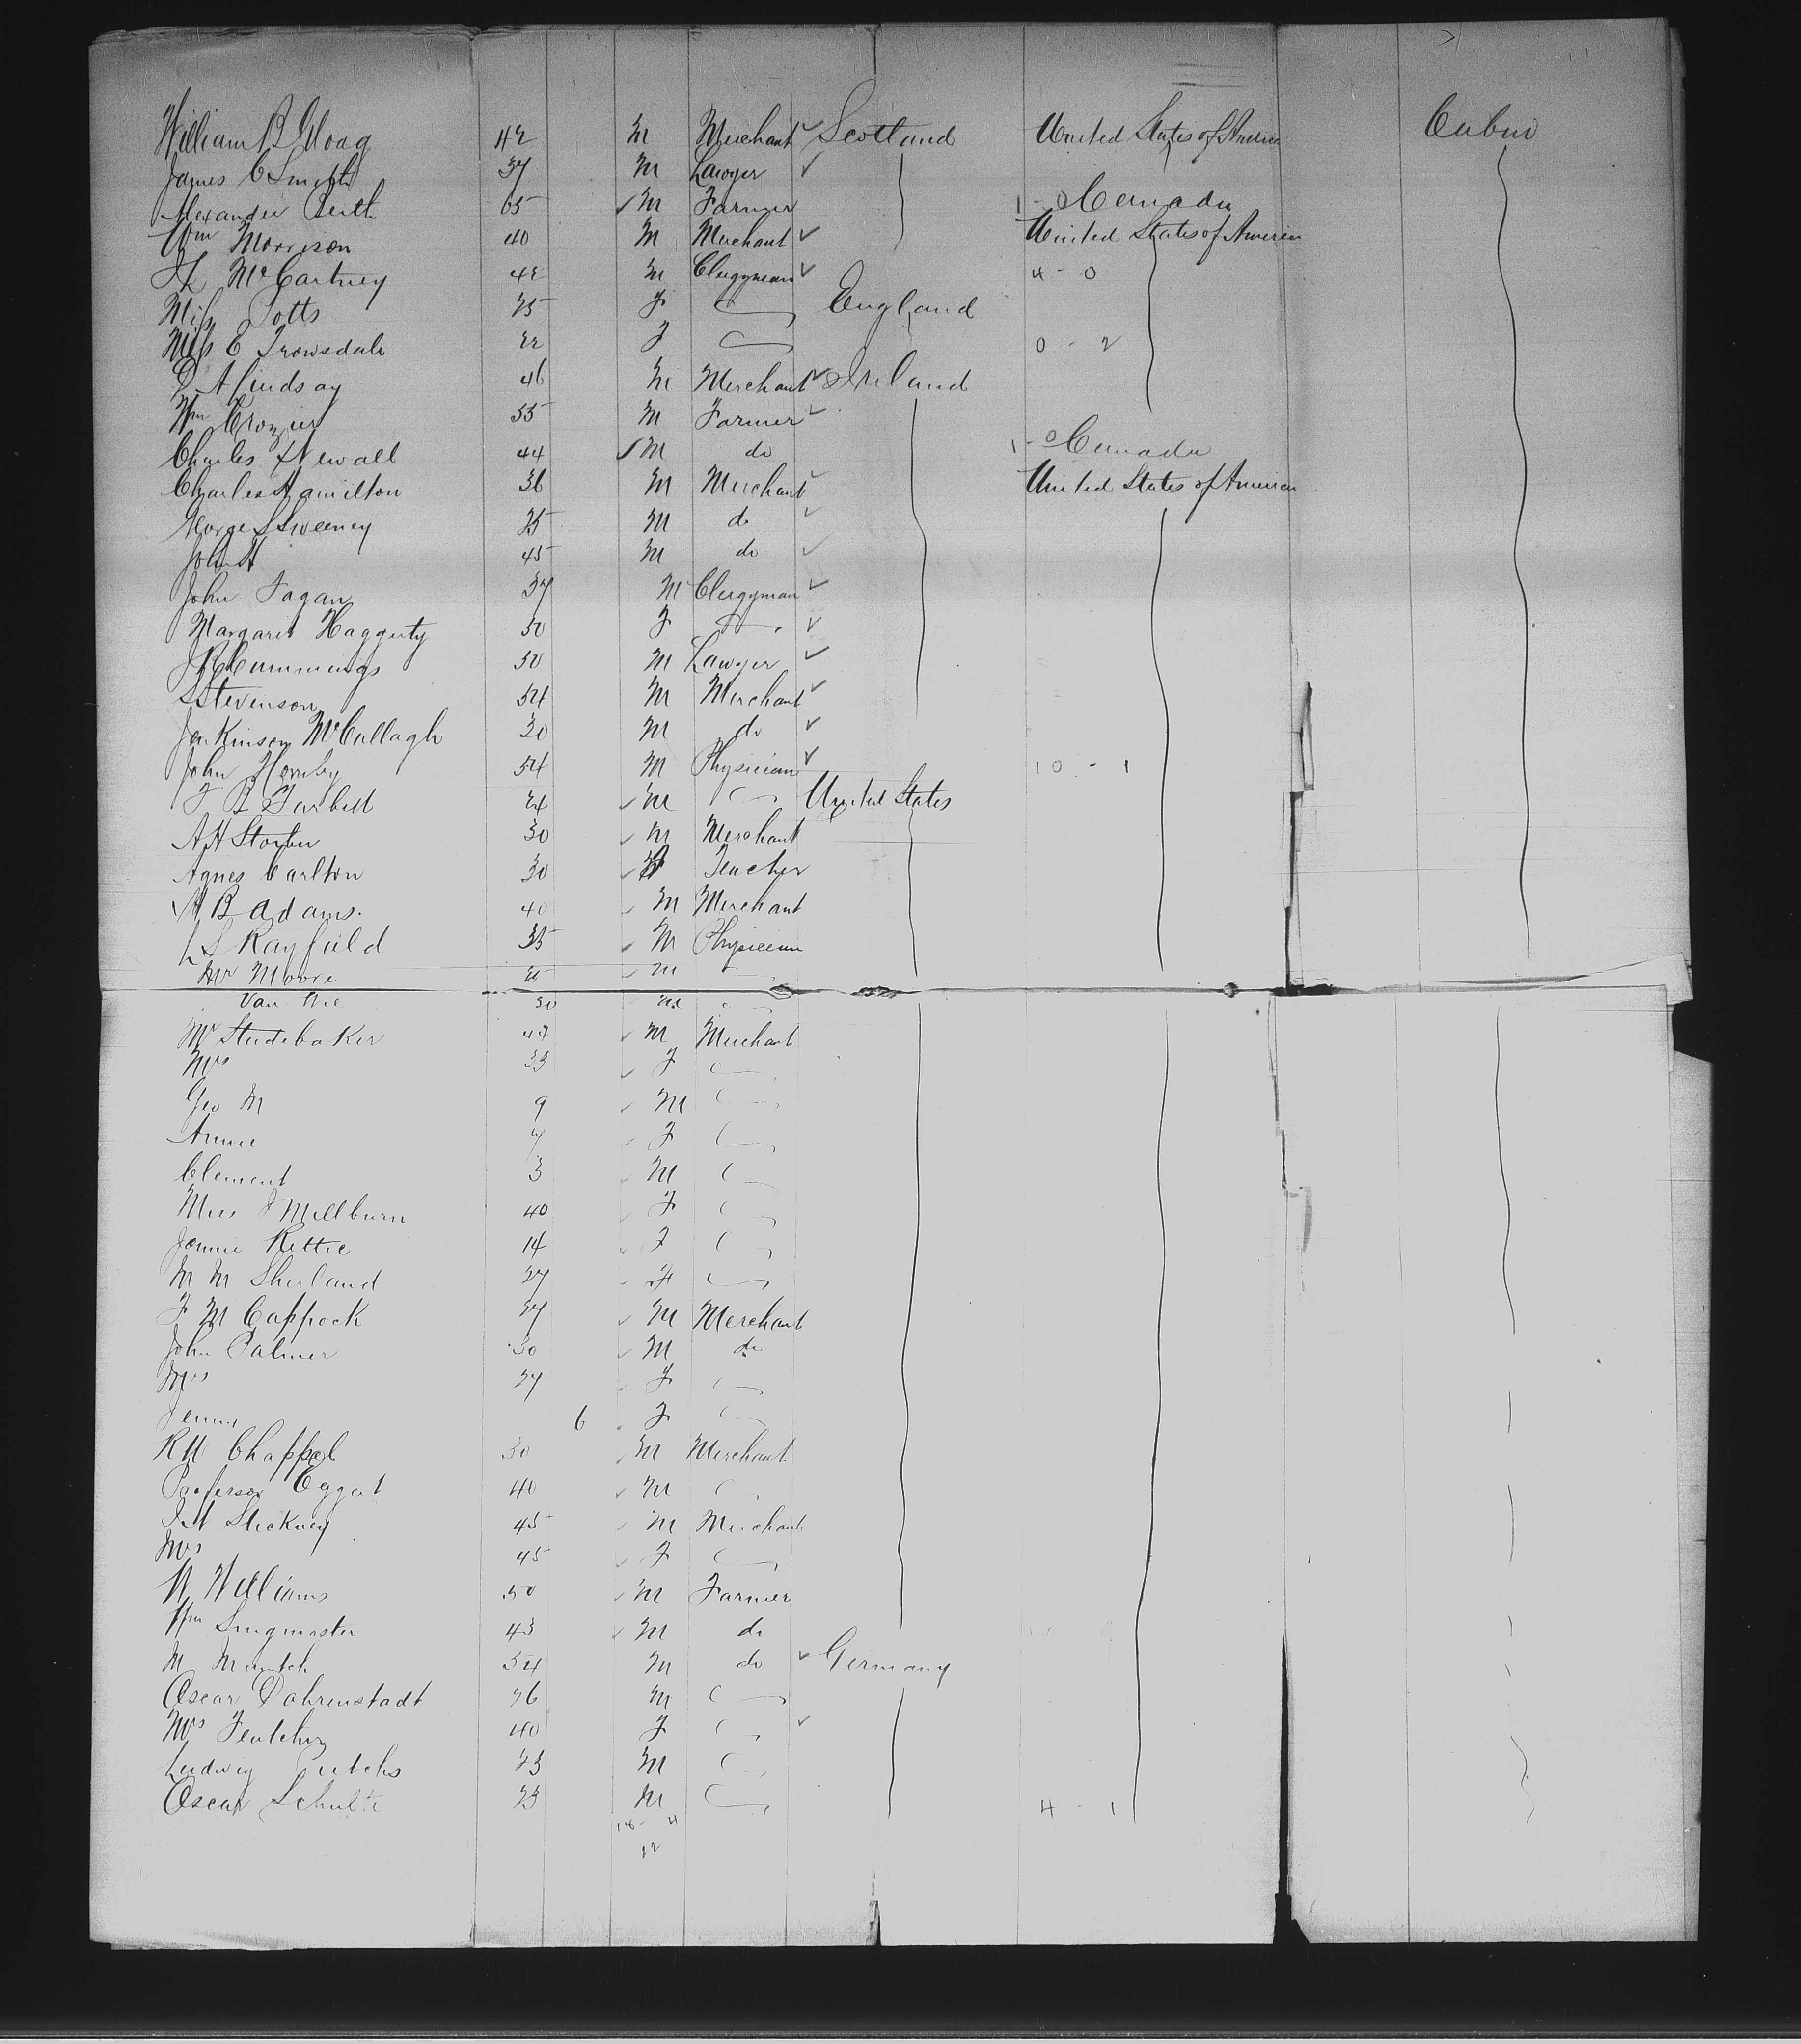 William B Gloag 42 M Merchant Scotland United States of America Cabin
James C Smith 37 M Lawyer
Alexander Leith 65 M Farmer 1 - 0 Canada
Wm Morrison 40 M Merchant United States of America
McCartney 42 M Clergyman 4 - 0
Miss Potts 25 F England
Miss E Trowsdale 22 F 0 - 2
D A Lindsay 46 M Merchant Ireland
Wm Crozier 35 M Farmer
Charles Newall 44 M do 1 - 0 Canada
Charles Hamilton 36 M Merchant United States of America
George S Sweeney 35 M do
John H 45 M do
John Fagan 37 M Clergyman
Margaret Haggerty 50 F
J R Cummings 50 M Lawyer
S Stevenson 54 M Merchant
Jenkinson McCullagh 30 M do
John Hornby 54 M Physician 10 - 1
F B Tarbell 24 M United States
A H 30 M Merchant
Agnes Carlton 30 F Teacher
H B Adams. 40 M Merchant
L S Rayfield 35 M Physician
Mr Moore M
Van 30 M
Mr Studebaker 43 M Merchant
Mrs 33 F
Geo M 9 M
Annie 7 F
Clement 3 M
Miss J Millburn 40 F
Jennie Rettie 14 F
M M Sherland 27 F
F M Cappock 27 M Merchant
John Palmer 30 M do
Mrs 27 F
Jenny 6 F
Chappel 30 M Merchant
Professor Eggert 40 M
Stickney 45 M Merchant
Mrs 45 F
N Williams 50 M Farmer
Wm Singmaster 43 M do
M Muntch 54 M do Germany
Oscar Dahrenstadt 26 M
Mrs 40 F
Ludwig 23 M
Oscar Schulte 23 M 4 - 1
12